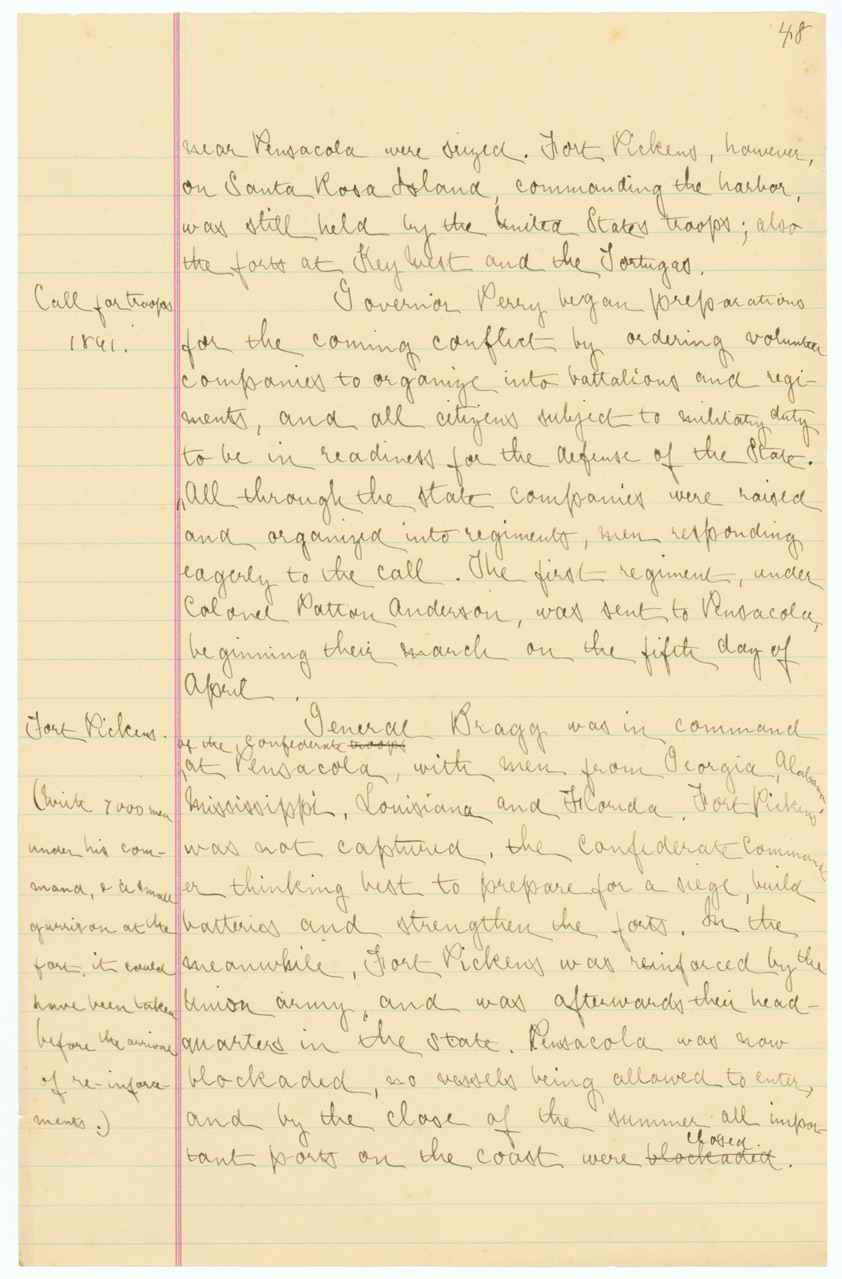 48
near Pensacola were seized. Fort Pickens, however,
on Santa Rosa Island, commanding the harbor,
was still held by the United States troops; also
the forts at Key West and the Tortugas.
Call for troops
1861.
Governor Perry began preparations
for the coming conflict by ordering volunteer
companies to organize into battalions and regi-
ments, and all citizens subject to military duty
to be in readiness for the defense of the State.
All through the state companies were raised
and organized into regiments, men responding
eagerly to the call. The first regiment, under
Colonel Patton Anderson, was sent to Pensacola,
beginning their march on the fifth day of
April.
Fort Pickens.
General Bragg was in command
of the Confederate troops
at Pensacola, with men from Georgia, Alabama,
Mississippi, Louisiana and Florida. Fort Pickens
was not captured, the confederate command-
er thinking best to prepare for a siege, build
batteries and strengthen the forts. In the
meanwhile, Fort Pickens was reinforced by the
Union army, and was afterwards their head-
quarters in the state. Pensacola was now
blockaded, no vessels being allowed to enter,
and by the close of the summer all impor-
closed
tant ports on the coast were blockaded.
(With 7000 men
under his com-
mand, & a small
garrison at the
fort, it could
have been taken
before the arrival
of re-inforce-
ments.)